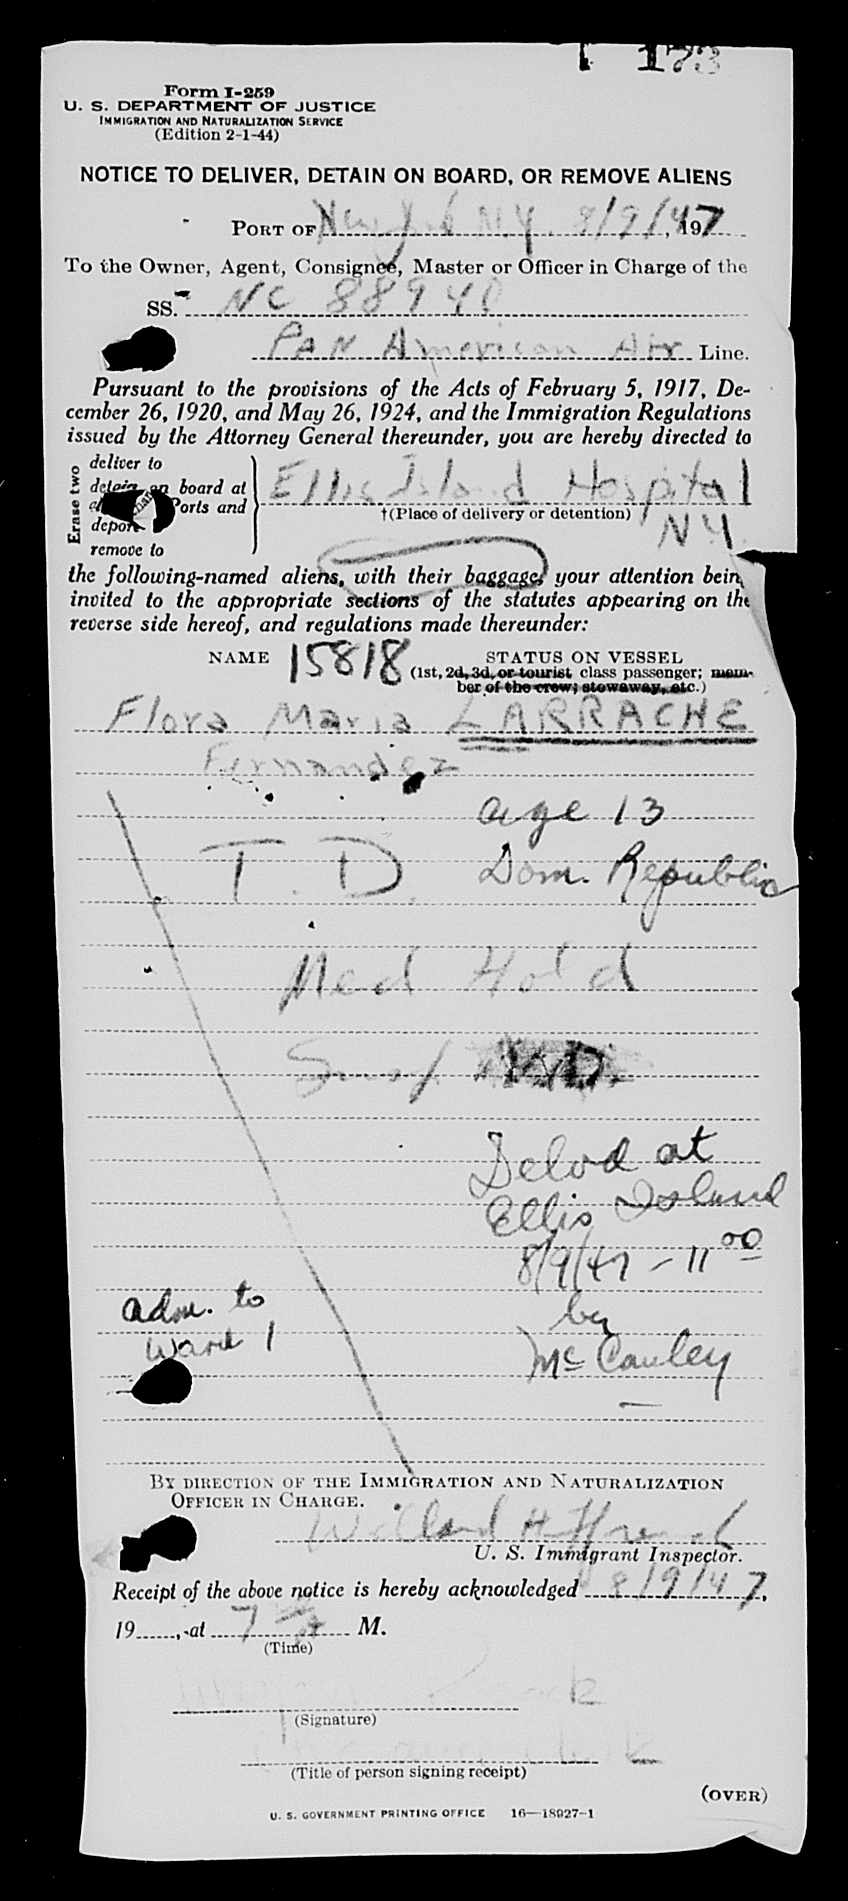 173
Form I-259
U. S. DEPARTMENT OF JUSTICE
IMMIGRATION AND NATURALIZATION SERVICE
(Edition 2-1-44)
NOTICE TO DELIVER, DETAIN ON BOARD, OR REMOVE ALIENS
PORT OF New York N.Y. 8/9/47, 197
To the Owner, Agent, Consignee, Master or Officer in Charge of the
SS. NC 88940
PAN American Air Line.
Pursuant to the provisions of the Acts of February 5, 1917, De-
cember 26, 1920, and May 26, 1924, and the Immigration Regulations
issued by the Attorney General thereunder, you are hereby directed to
Erase two
deliver to
detain on board at
Ports and
deport
remove to
Ellis Island Hospital
†(Place of delivery or detention)
NY.
the following-named aliens, with their baggage, your attention being
invited to the appropriate sections of the statutes appearing on the
reverse side hereof, and regulations made thereunder:
NAME 15818 STATUS ON VESSEL
(1st, 2d, 3d, or tourist class passenger; mem-
ber of the crew; stowaway, etc.)
Flora Maria LARRACHE
Fernandez
age 13
T.D. Dom. Republic
Med Hold
Susp
Delvd at
Ellis Island
8/9/47 - 11 00
by
McCauley
adm. to
Ward 1
BY DIRECTION OF THE IMMIGRATION AND NATURALIZATION
OFFICER IN CHARGE.
U. S. Immigrant Inspector.
Receipt of the above notice is hereby acknowledged 8/9/47,
19 , at 7 M.
(Time)
(Signature)
(Title of person signing receipt)
(OVER)
U. S. GOVERNMENT PRINTING OFFICE 16—18927-1